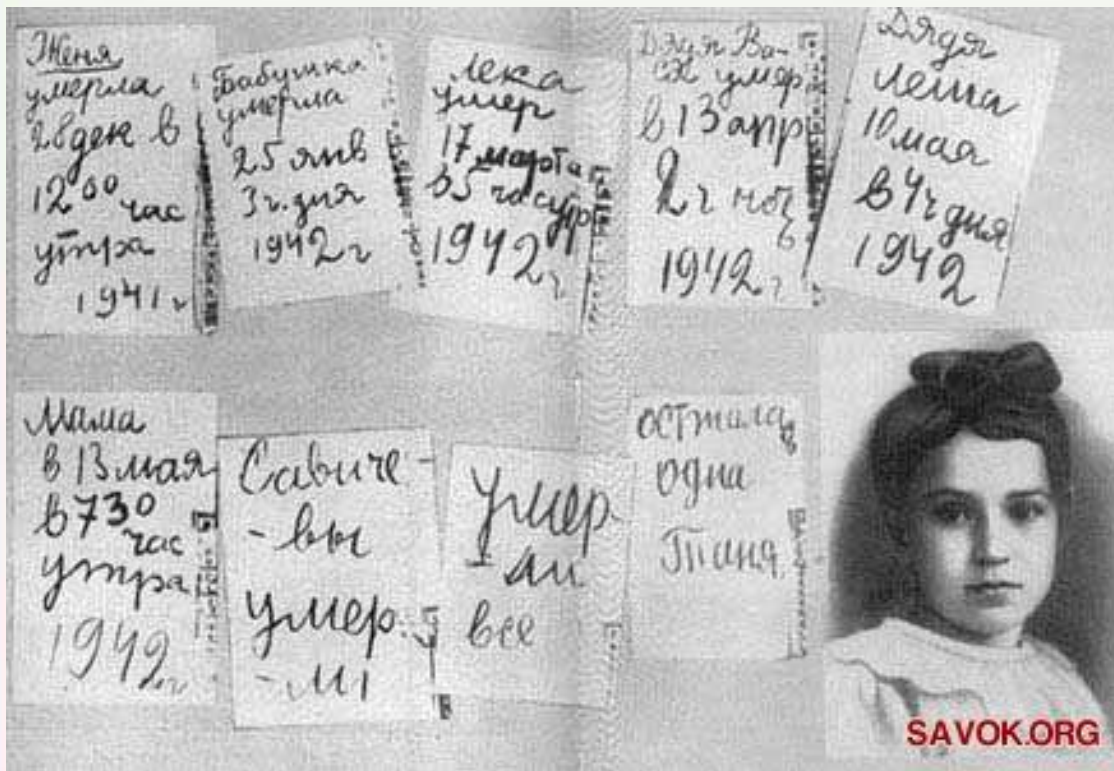 Женя
умерла
28 дек в
12 00 час
утра
1941 г
Бабушка
умерла
25 янв
3 ч. дня
1942 г
Лека
умер
17 марта
в 5 час утр
1942 г
Дядя Ва-
ся умер
в 13 апр
2 ч ночь
1942 г
Дядя
Леша
10 мая
в 4 ч дня
1942
Мама
в 13 мая
в 7 30
час
утра
1942 г
Савиче-
-вы
умер
-ли
умер
ли
все
осталась
одна
Таня
SAVOK.ORG